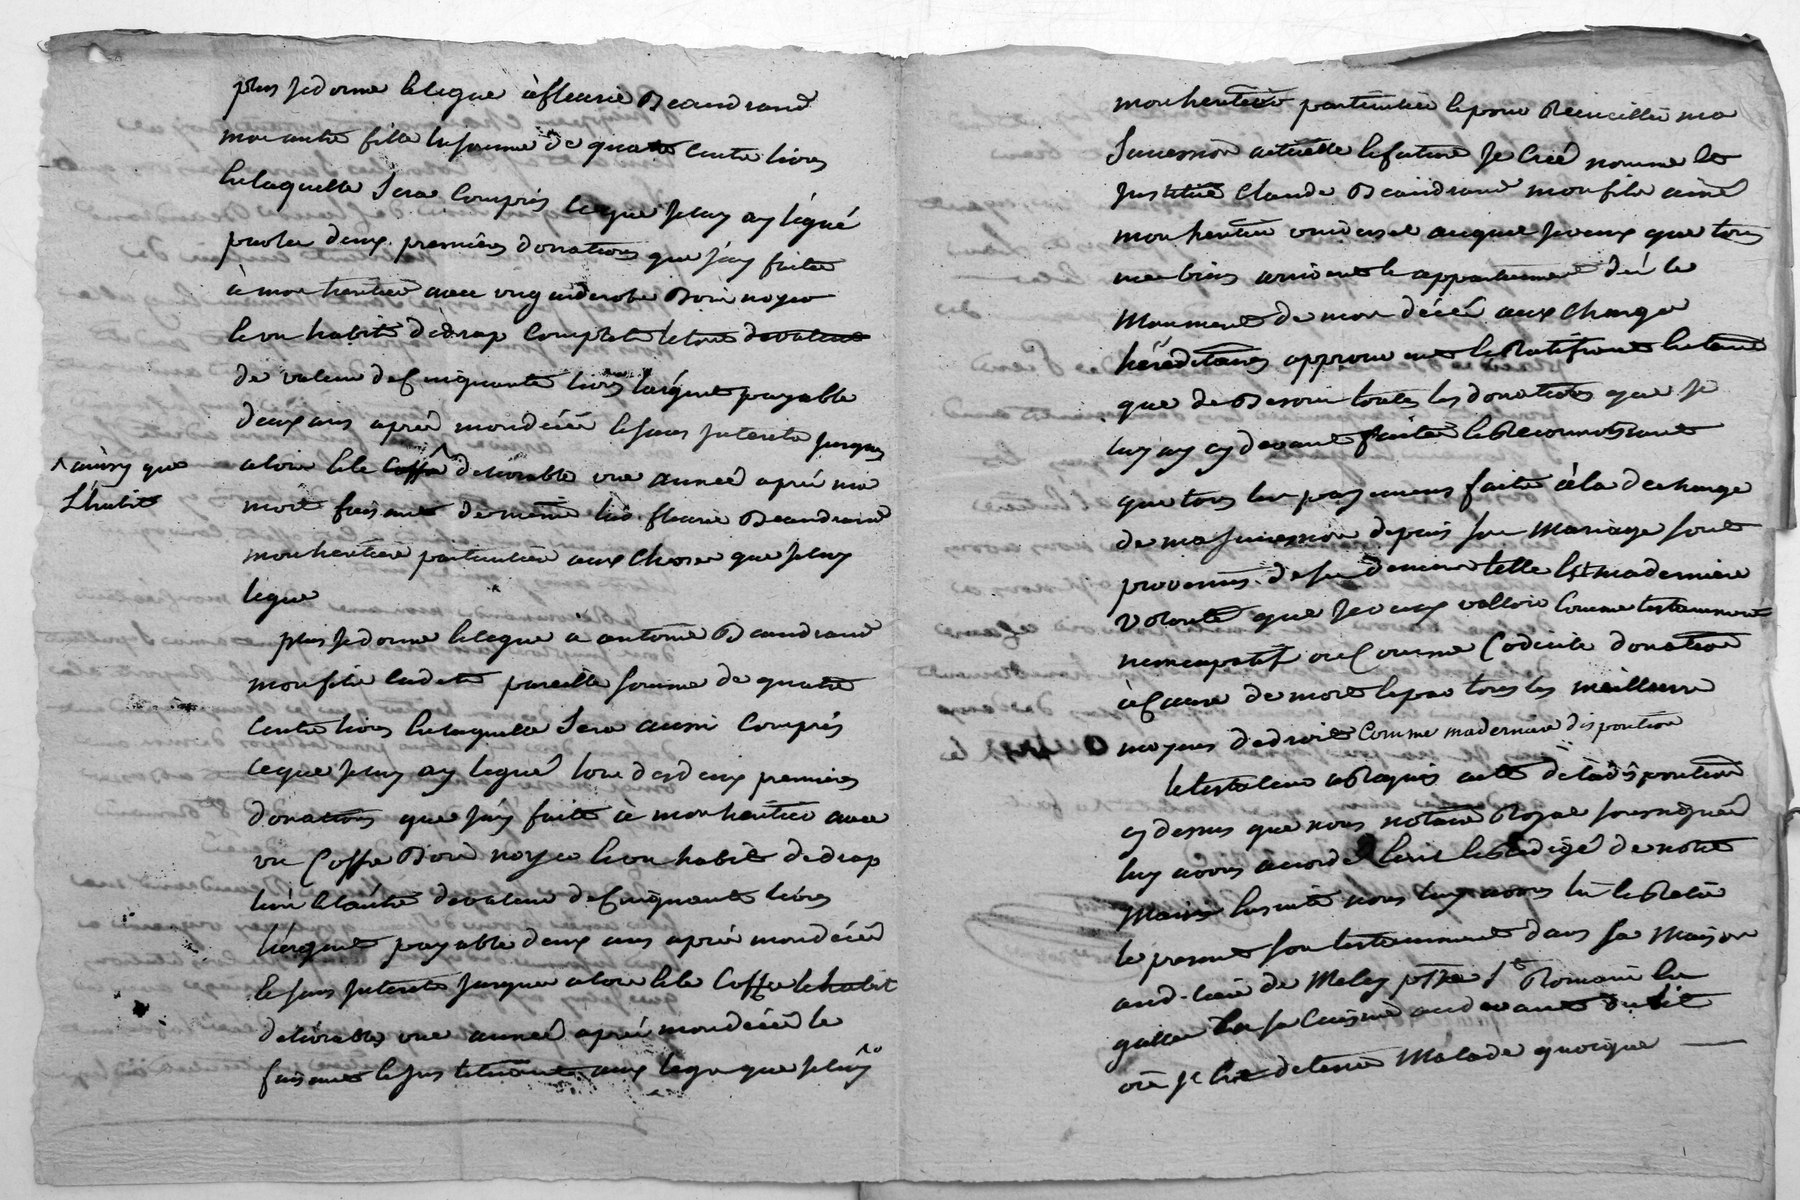 plus Je donne & legue à fleurie Beaudrand
mon autre fille la somme de quatre cents livres
en laquelle Sera Compris ce que Je luy ay légué
par les deux premières donations que J'ay faites
à mon heritier avec un garderobe Bois noyer
& un habit de drap complet le tout de valeur
de valeur de Cinquante livres l'argent payable
deux ans après mon décéé & sans Interets Jusques
alors & le Coffre ^ delivrable une année après ma
^ ainsy que
L'habit
mort faisant de même lad. fleurie Beaudrand
mon heritiere particuliere aux Choses que Je luy
legue
plus Je donne & legue à antoine Beaudrand
mon fils cadet pareille somme de quatre
Cents livres en laquelle Sera aussi Compris
ce que Je luy ay legué lors des deux premieres
donations que J'ay faite à mon heritier avec
un Coffre Bois noyer & un habit de drap
l'un & l'autre de valeur de Cinquante livres
l'argent payable deux ans après mon décéé
& sans Interets Jusques alors & le Coffre & habit
delivrables une année après mon décéé le
faisant & Instituant aux legs que Je luy
mon heritier particulier & pour Recueillir ma
Succession actuelle & future Je Créé nomme &
Institue Claude Beaudrand mon fils ainé
mon heritier universel auquel Je veux que tous
mes biens arrivent & appartiennent dés le
Moument de mon décéé aux Charges
héréditaires approuvant & Ratifiant en tant
que de Besoin toutes les donations que Je
luy ay cy devant faites & Reconnoissant
que tous les payemens faits à la decharge
de ma succession depuis son Mariage sont
provenus de ses deniers telle Est ma derniere
volonté que Je veux valloir Comme testament
nuncupatif ou Comme Codicile donation
à Cause de mort & par tous les meilleurs
moyens de droit Comme ma derniere disposition
Le testateur a Requis acte de la disposition
cy dessus que nous notaire Royal soussigné
luy avons accordé Ecrit & Redigé de notre
Main Ensuite nous luy avons lu & Relu
le present son testament dans sa Maison
aud. lieu de Meley psse St Romain En
gallier En sa Cuisine au devant du lit
où Je Est detenu Malade quoique —